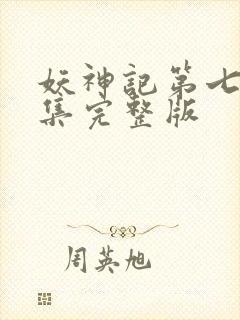 妖神記第七
集完整版
周英旭